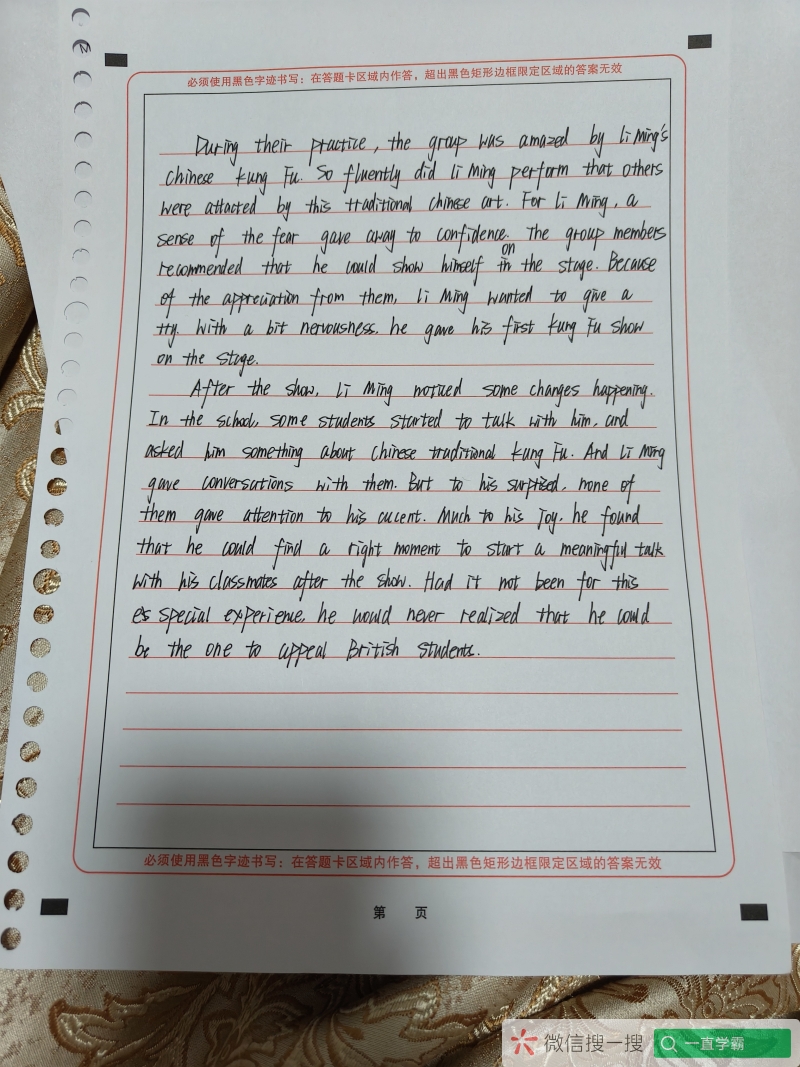 必须使用黑色字迹书写；在答题卡区域内作答，超出黑色矩形边框限定区域的答案无效
During their practice, the group was amazed by Li Ming's
chinese kung Fu. So fluently did Li Ming perform that others
were attacted by this traditional chinese art. For Li Ming, a
sense of the fear gave away to confidence. The group members
on
recommended that he could show himself in the stage. Because
of the appreciation from them, Li Ming wanted to give a
try. With a bit nervousness. he gave his first kung Fu show
on the stage.
After the show, Li Ming noticed some changes happening.
In the school, some students started to talk with him, and
asked him something about chinese traditional kung Fu. And Li Ming
gave conversations with them. But to his surprised, none of
them gave attention to his accent. Much to his joy, he found
that he could find a right moment to start a meaningful talk
with his classmates after the show. Had it not been for this
es special experience, he would never realized that he could
be the one to appeal British students.
必须使用黑色字迹书写；在答题卡区域内作答，超出黑色矩形边框限定区域的答案无效
第 页
微信搜一搜 一直学霸